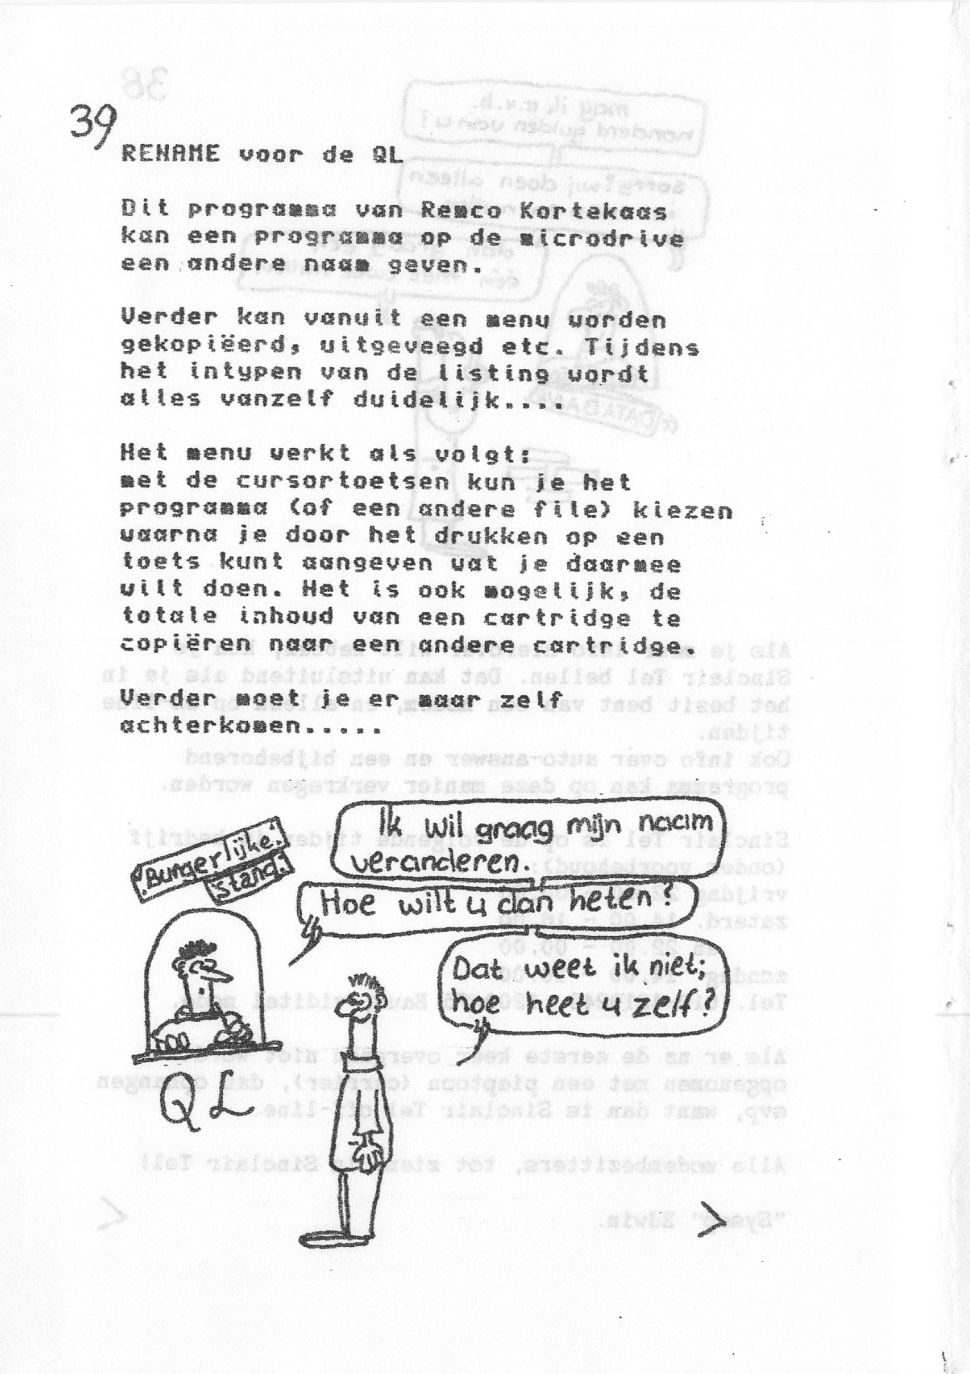 39
RENAME voor de QL
Dit programma van Remco Kortekaas
kan een programma op de microdrive
een andere naam geven.
Verder kan vanuit een menu worden
gekopiëerd, uitgeveegd etc. Tijdens
het intypen van de listing wordt
alles vanzelf duidelijk....
Het menu werkt als volgt:
met de cursortoetsen kun je het
programma (of een andere file) kiezen
waarna je door het drukken op een
toets kunt aangeven wat je daarmee
wilt doen. Het is ook mogelijk, de
totale inhoud van een cartridge te
copiëren naar een andere cartridge.
Verder moet je er maar zelf
achterkomen.....
Ik wil graag mijn naam
veranderen.
Burgerlijke
Stand
Hoe wilt u dan heten?
Dat weet ik niet;
hoe heet u zelf?
QL
>